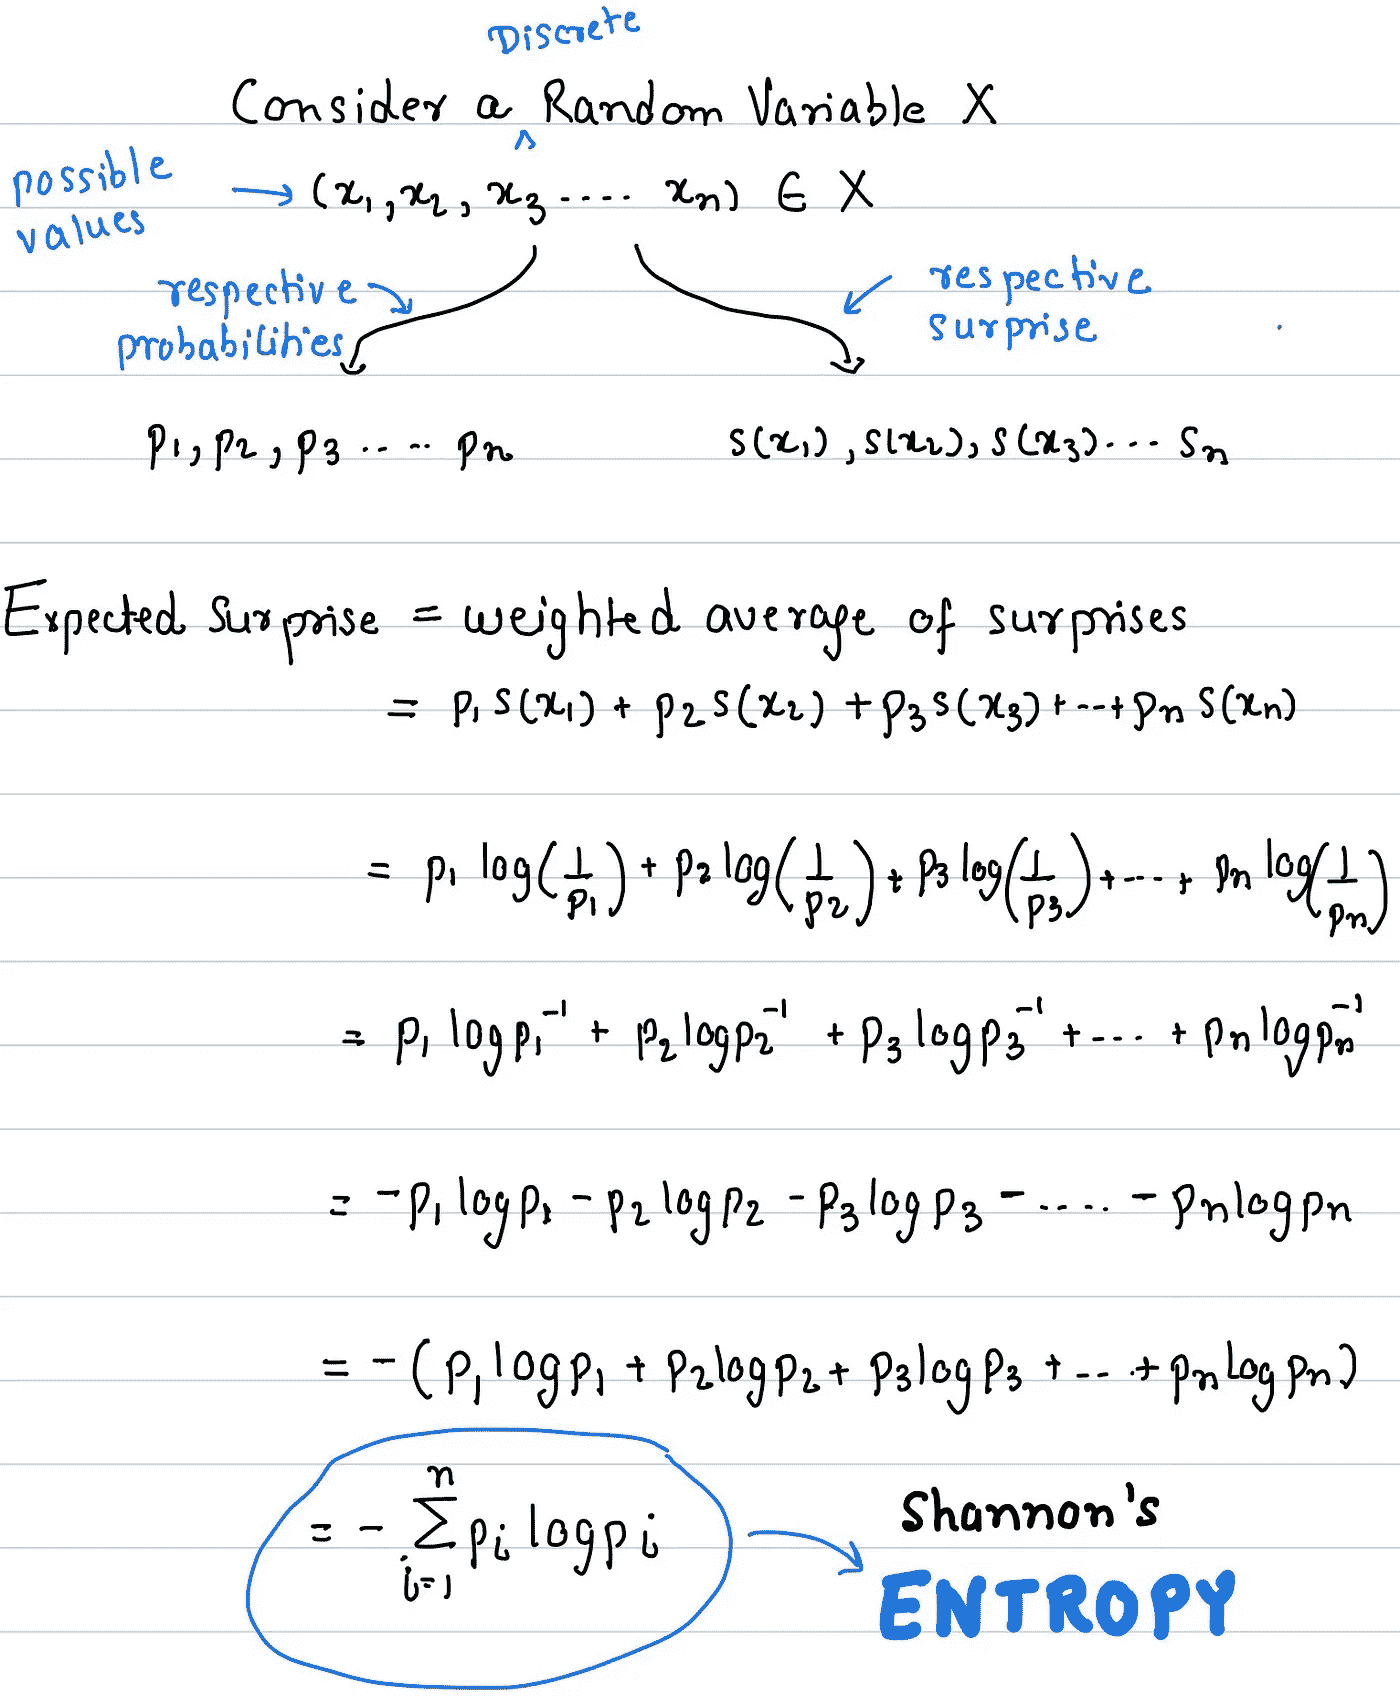 Discrete
Consider a ^ Random Variable X
possible values → (x₁, x₂, x₃ .... xₙ) ∈ X
respective probabilities
respective surprise
p₁, p₂, p₃ .. .. pₙ
s(x₁), s(x₂), s(x₃) ... Sₙ
Expected Surprise = weighted average of surprises
= p₁ s(x₁) + p₂ s(x₂) + p₃ s(x₃) + --+ pₙ s(xₙ)
= p₁ log(1/p₁) + p₂ log(1/p₂) + p₃ log(1/p₃) + --- + pₙ log(1/pₙ)
= p₁ log p₁⁻¹ + p₂ log p₂⁻¹ + p₃ log p₃⁻¹ + --- + pₙ log pₙ⁻¹
= -p₁ log p₁ - p₂ log p₂ - p₃ log p₃ - ..... - pₙ log pₙ
= -(p₁ log p₁ + p₂ log p₂ + p₃ log p₃ + -- + pₙ log pₙ)
= - ∑ᵢ₌₁ⁿ pᵢ log pᵢ
Shannon's
ENTROPY